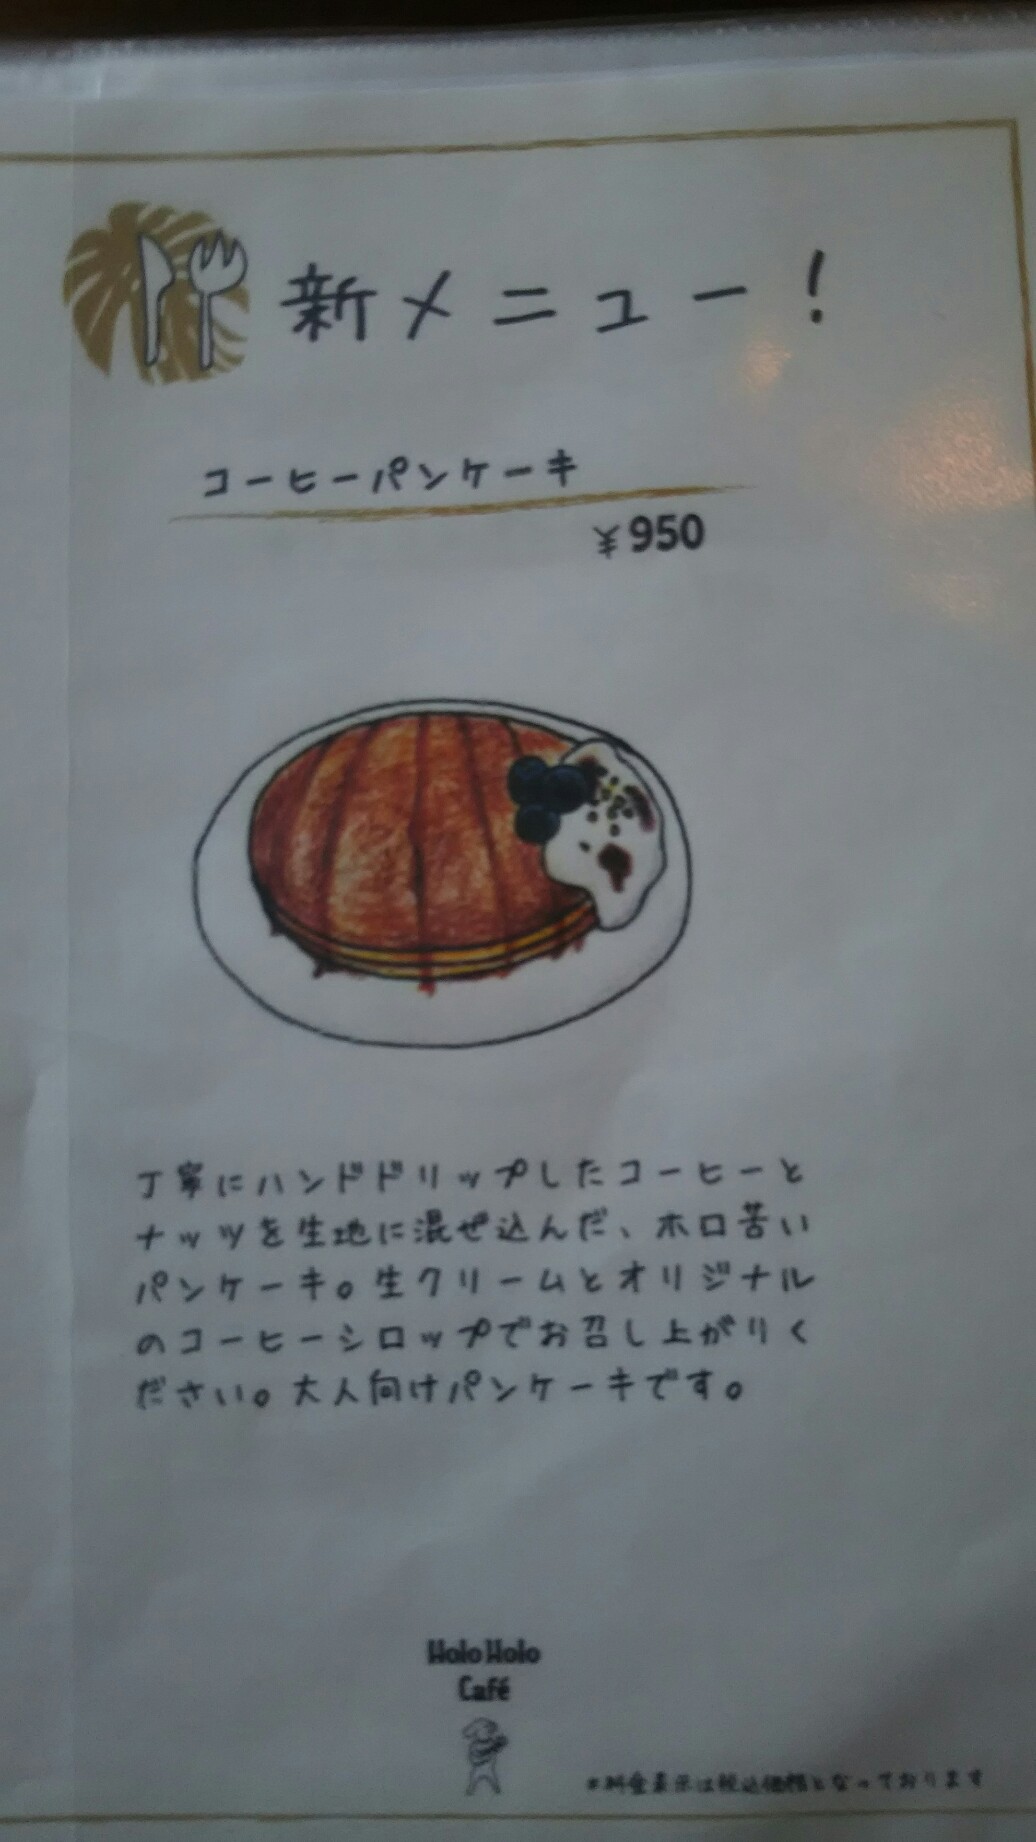 新メニュー!
コーヒーパンケーキ
¥950
丁寧にハンドドリップしたコーヒーと
ナッツを生地に混ぜ込んだ、ホロ苦い
パンケーキ。生クリームとオリジナル
のコーヒーシロップでお召し上がりく
ださい。大人向けパンケーキです。
Holo Holo
Café
*料金表示は税込価格となっております